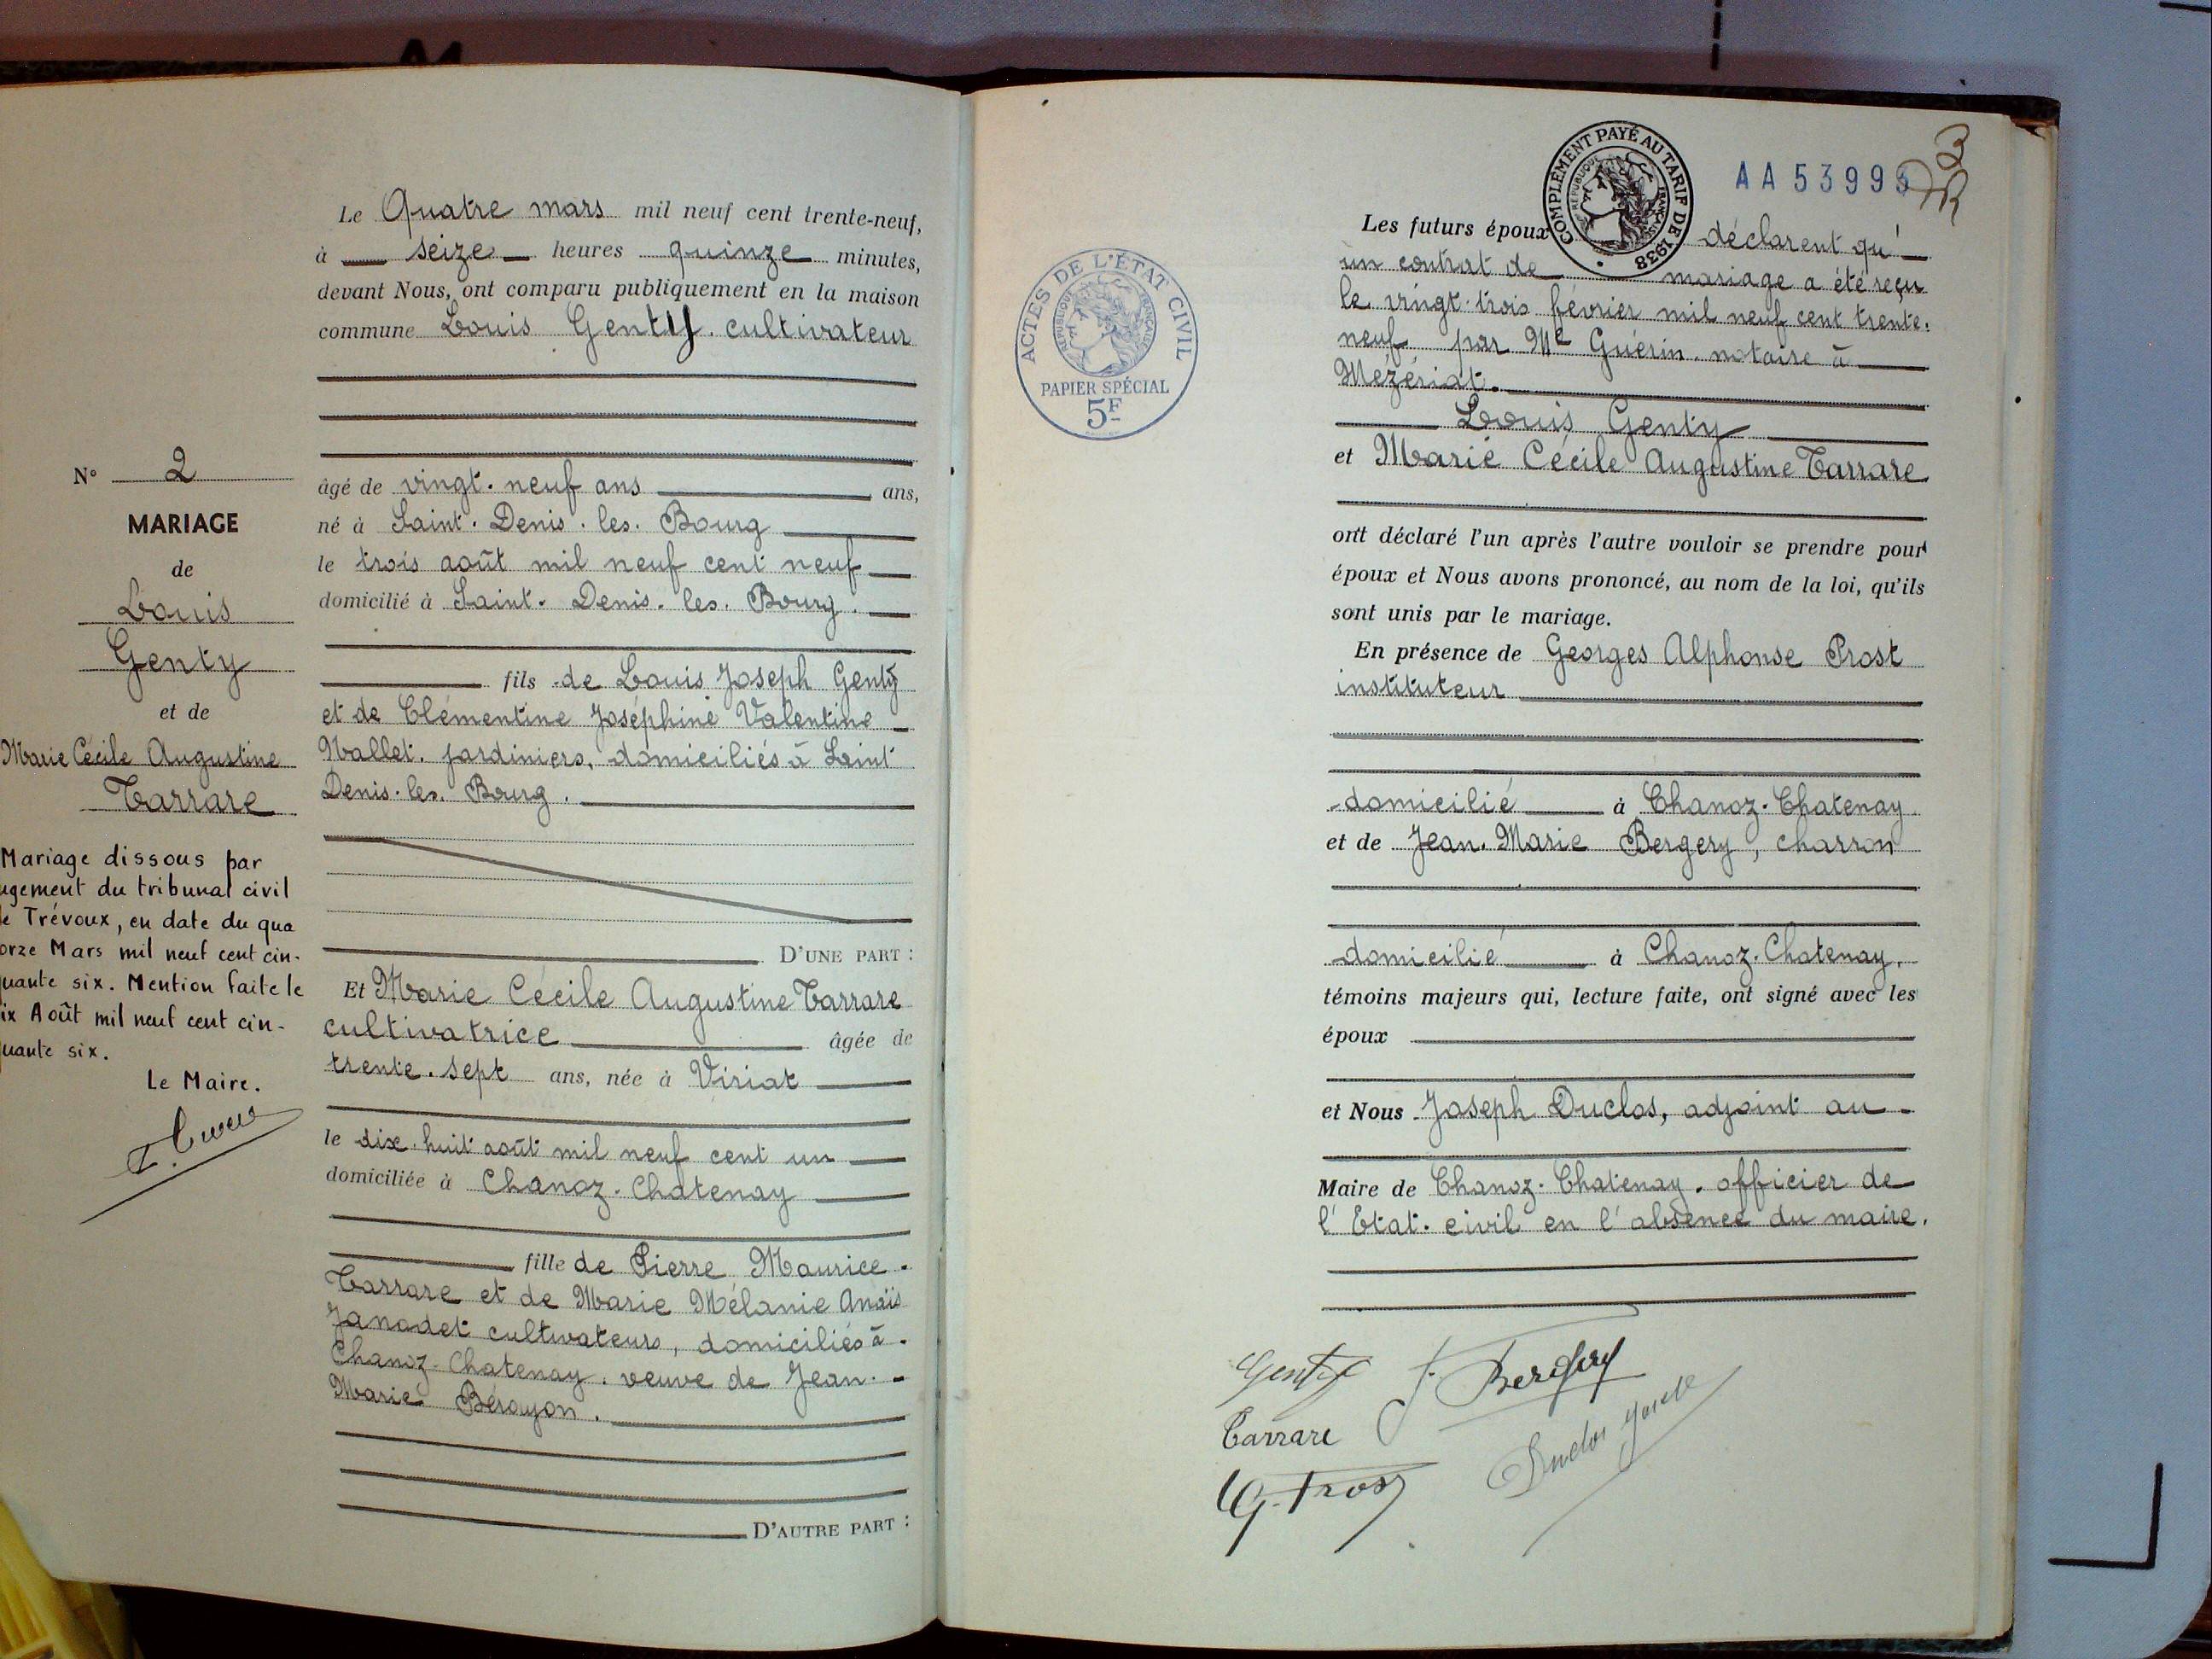 Le Quatre mars mil neuf cent trente-neuf,
à seize heures quinze minutes,
devant Nous, ont comparu publiquement en la maison
commune Louis Genty. cultivateur
âgé de vingt-neuf ans ans,
né à Saint-Denis-les-Bourg
le trois août mil neuf cent neuf
domicilié à Saint-Denis-les-Bourg.
fils de Louis Joseph Genty
et de Clémentine Joséphine Valentine
Mallet. jardiniers, domiciliés à Saint
Denis-les-Bourg.
D'UNE PART :
Et Marie Cécile Augustine Tarrare
cultivatrice âgée de
trente-sept ans, née à Viriat
le dix-huit août mil neuf cent un
domiciliée à Chanoz-Chatenay
fille de Pierre Maurice
Tarrare et de Marie Mélanie Anaïs
Janodet cultivateurs, domiciliés à
Chanoz-Chatenay. veuve de Jean-
Marie Bérayon.
D'AUTRE PART :
N° 2
MARIAGE
de
Louis
Genty
et de
Marie Cécile Augustine
Tarrare
Mariage dissous par
ugement du tribunal civil
e Trévoux, en date du qua
orze Mars mil neuf cent cin-
uante six. Mention faite le
ix Août mil neuf cent cin-
uante six.
Le Maire.
ACTES DE L'ÉTAT CIVIL
RÉPUBLIQUE FRANÇAISE
PAPIER SPÉCIAL
5F
COMPLÉMENT PAYÉ AU TARIF DE 1938
RÉPUBLIQUE FRANÇAISE
AA53995
3
Les futurs époux déclarent qu'
un contrat de mariage a été reçu
le vingt-trois février mil neuf cent trente-
neuf par Me Guérin. notaire à
Mézériat.
Louis Genty
et Marie Cécile Augustine Tarrare
ont déclaré l'un après l'autre vouloir se prendre pour
époux et Nous avons prononcé, au nom de la loi, qu'ils
sont unis par le mariage.
En présence de Georges Alphonse Prost
instituteur
domicilié à Chanoz-Chatenay.
et de Jean-Marie Bergery, charron
domicilié à Chanoz-Chatenay.
témoins majeurs qui, lecture faite, ont signé avec les
époux
et Nous Joseph Duclos, adjoint au
Maire de Chanoz-Chatenay. officier de
l'Etat-civil en l'absence du maire.
Genty J. Bergery
Tarrare
Duclos Joseph
G. Prost